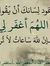 لسانك أن يقول
اللهم اغفر لي
لله ساعات لا